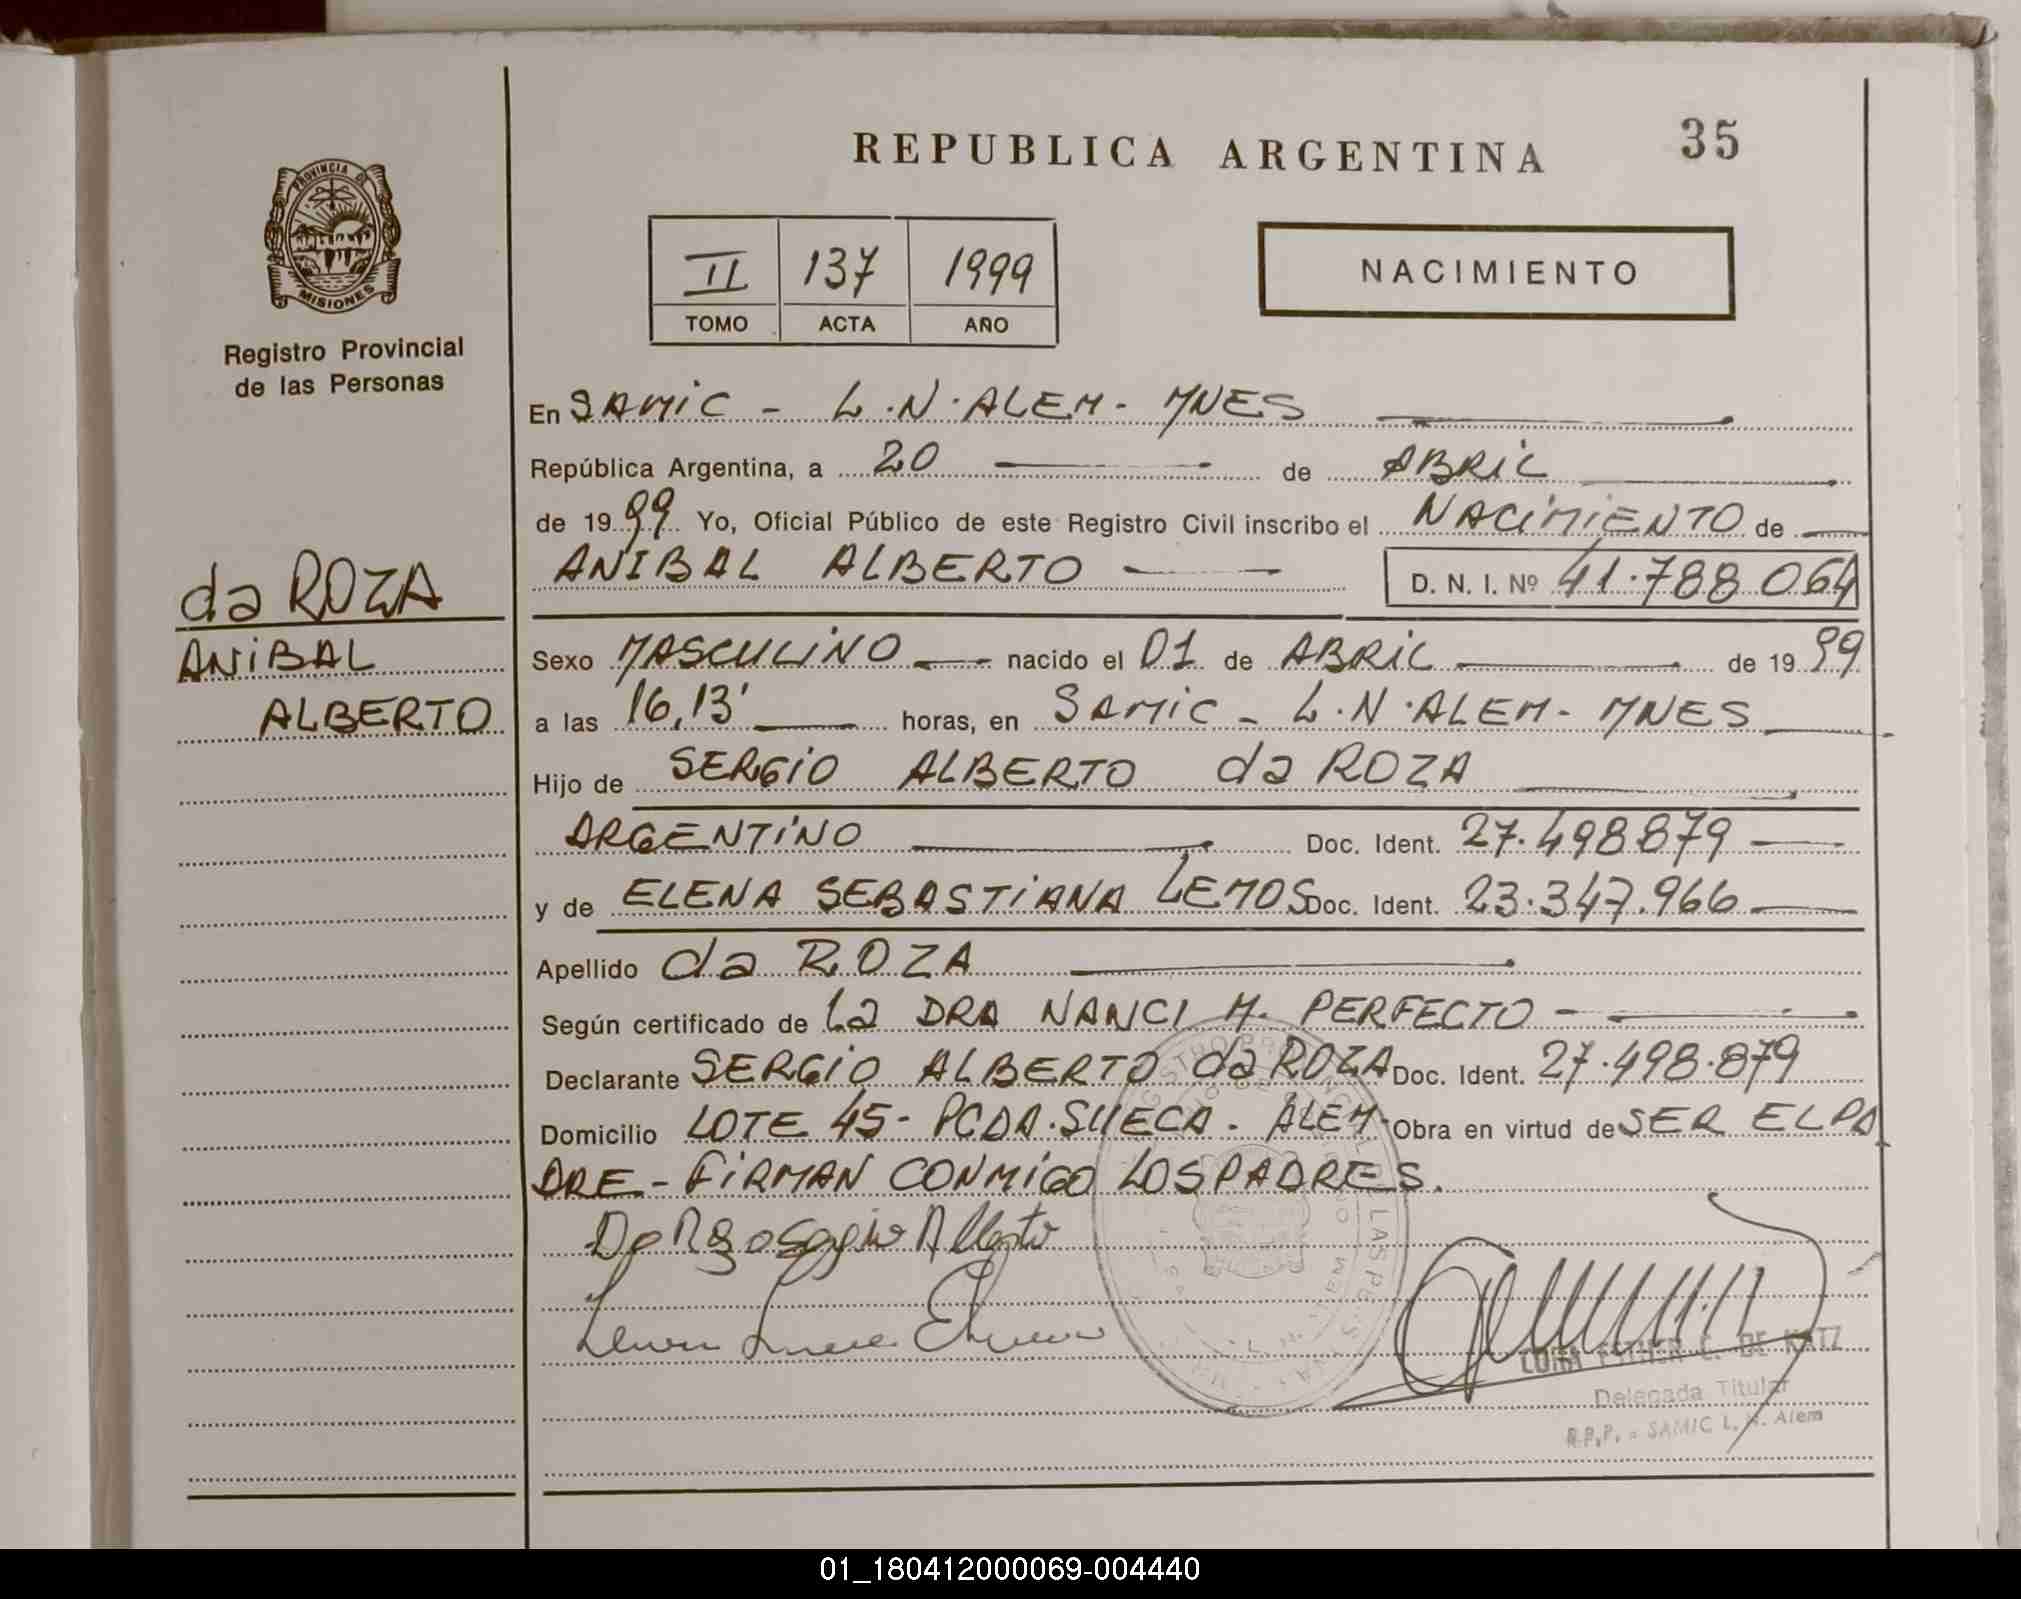 REPUBLICA ARGENTINA
35
PROVINCIA DE
MISIONES
Registro Provincial
de las Personas
II 137 1999
TOMO ACTA AÑO
NACIMIENTO
En SAMIC - L.N. ALEM - MNES
República Argentina, a 20 de ABRIL
de 1999 Yo, Oficial Público de este Registro Civil inscribo el NACIMIENTO de
ANIBAL ALBERTO D. N. I. Nº 41.788.064
da ROZA
ANIBAL
ALBERTO
Sexo MASCULINO nacido el 01 de ABRIL de 1999
a las 16,13' horas, en SAMIC - L.N. ALEM - MNES
Hijo de SERGIO ALBERTO da ROZA
ARGENTINO Doc. Ident. 27.498.879
y de ELENA SEBASTIANA LEMOS Doc. Ident. 23.347.966
Apellido da ROZA
Según certificado de La DRA NANCI M. PERFECTO
Declarante SERGIO ALBERTO da ROZA Doc. Ident. 27.498.879
Domicilio LOTE 45 - PCDA. SUECA - ALEM - Obra en virtud de SER EL PA
DRE - FIRMAN CONMIGO LOS PADRES.
ESTHER C. DE KATZ
Delegada Titular
R.P.P. - SAMIC L. N. Alem
01_180412000069-004440